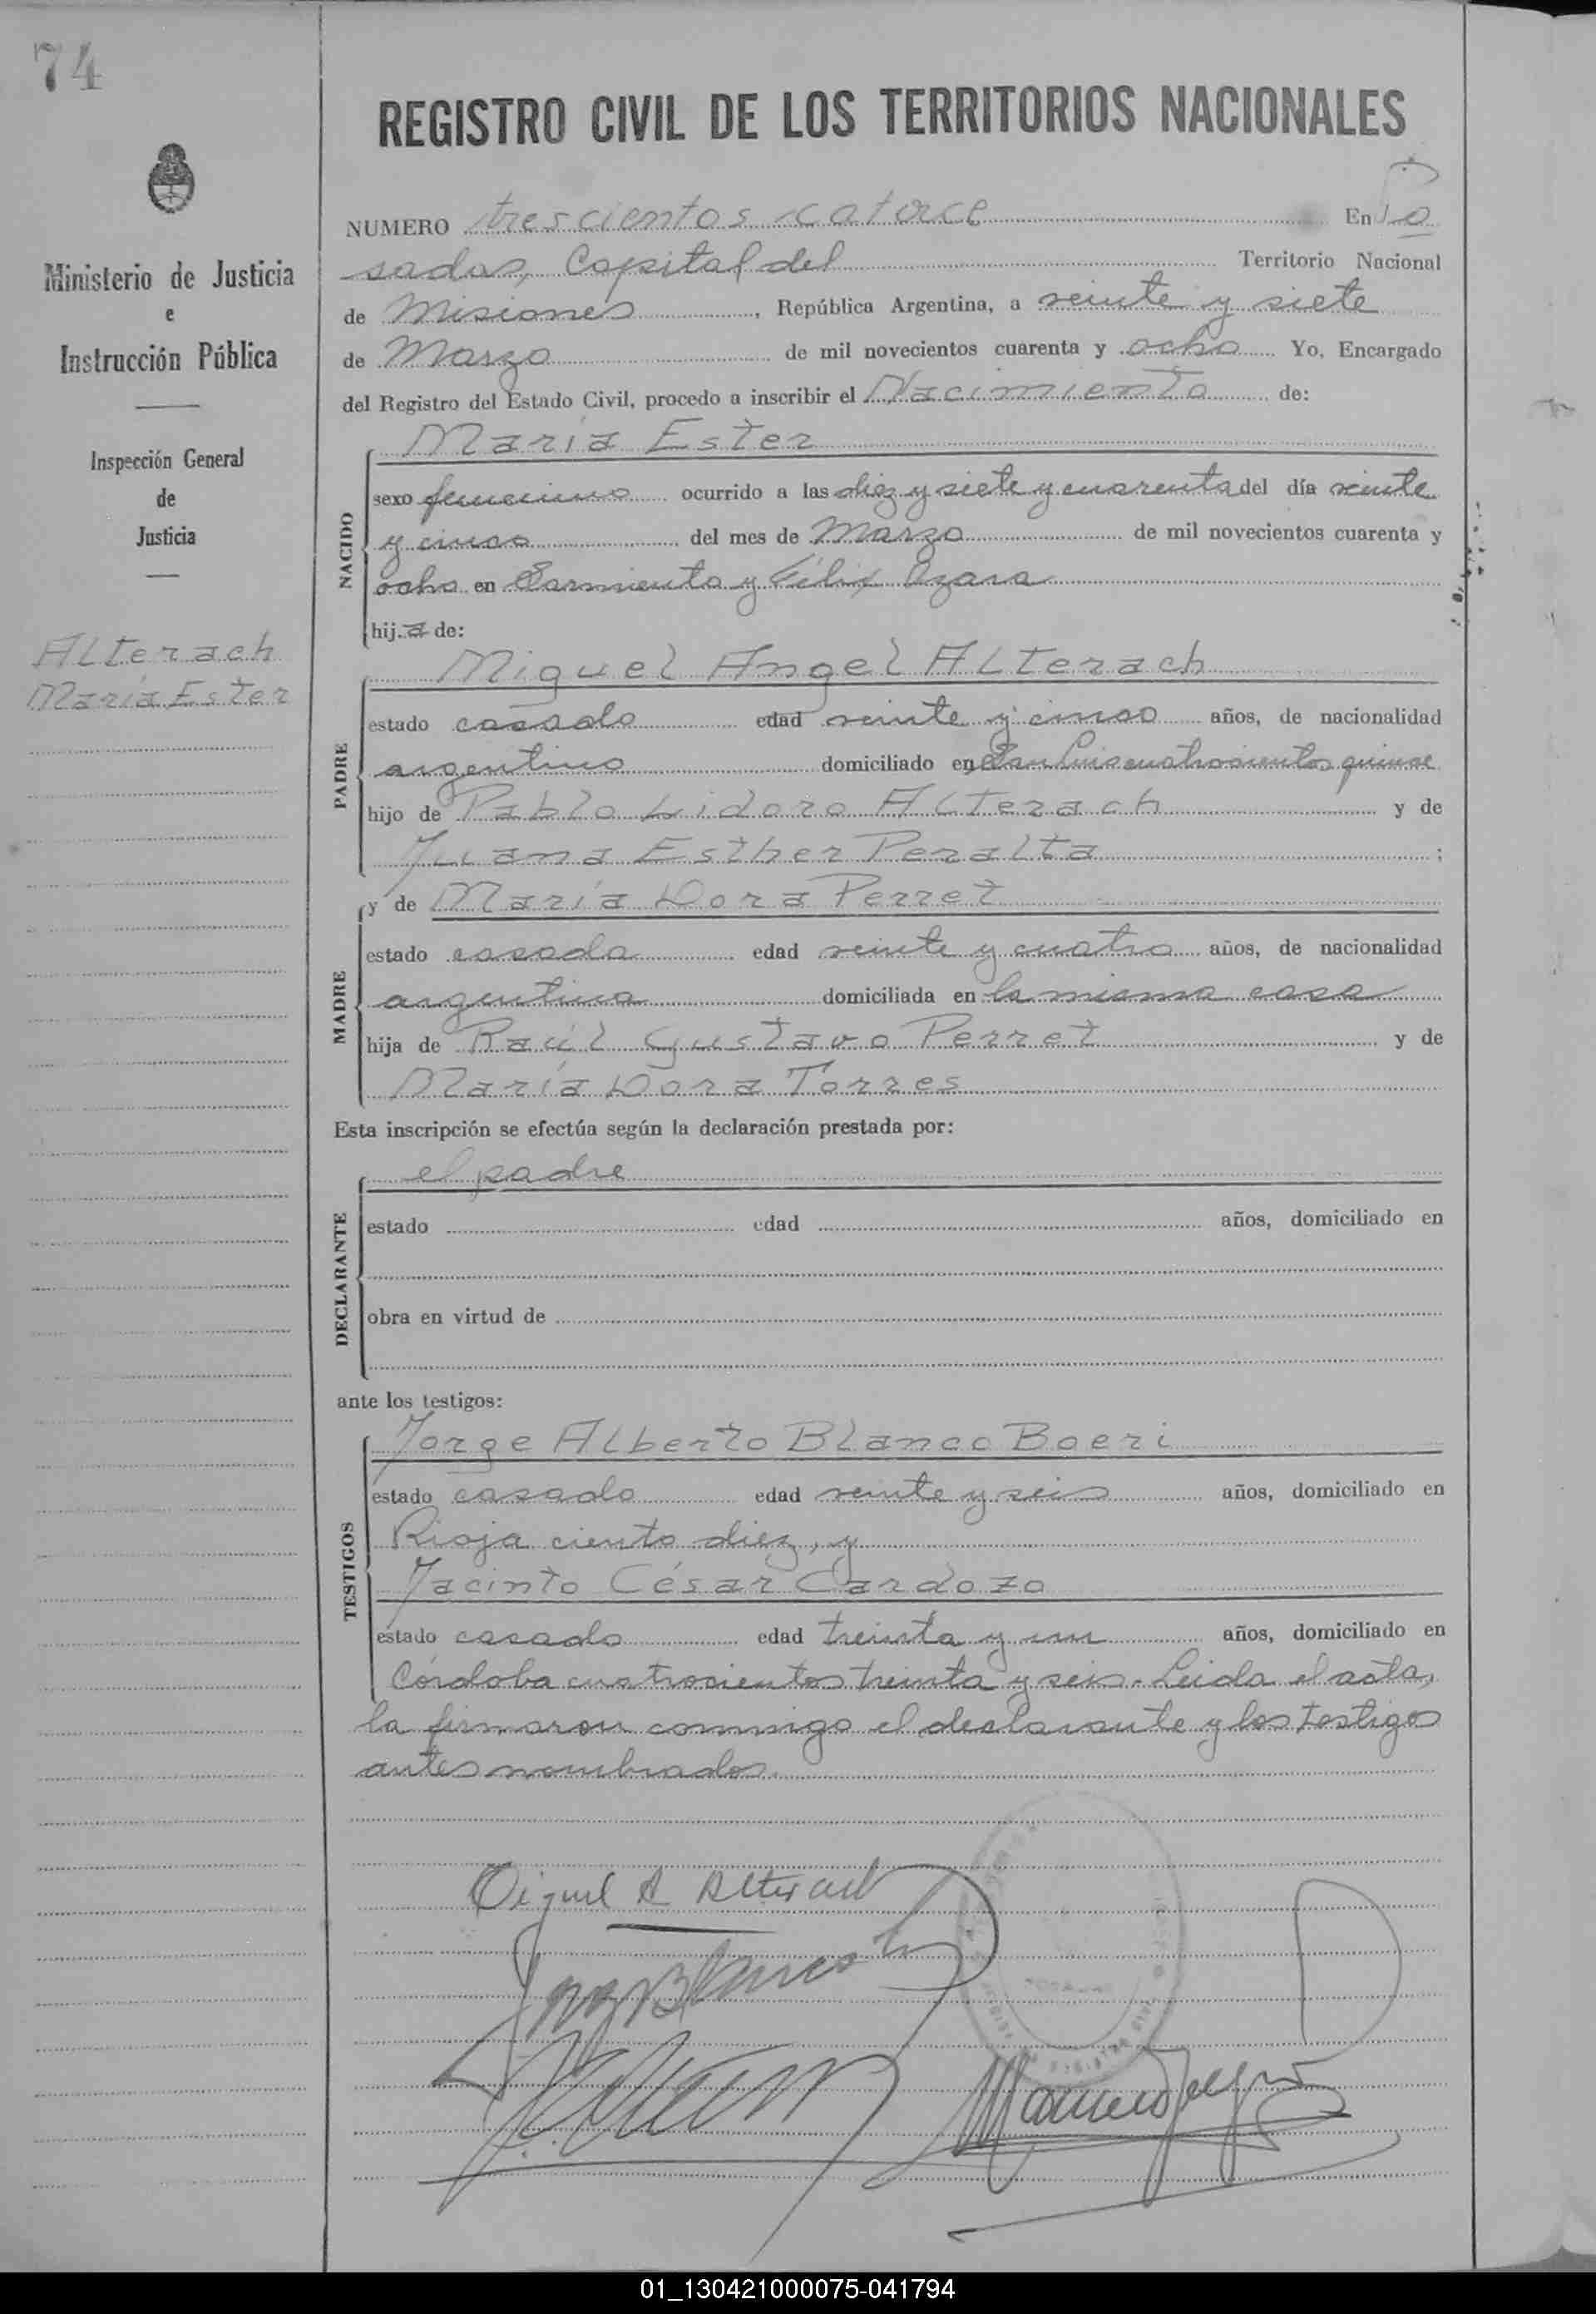 74
REGISTRO CIVIL DE LOS TERRITORIOS NACIONALES
Ministerio de Justicia
e
Instrucción Pública
Inspección General
de
Justicia
Alterach
María Ester
NUMERO trescientos catorce En Po
sadas, Capital del Territorio Nacional
de Misiones, República Argentina, a veinte y siete
de Marzo de mil novecientos cuarenta y ocho Yo, Encargado
del Registro del Estado Civil, procedo a inscribir el Nacimiento de:
NACIDO
María Ester
sexo femenino ocurrido a las diez y siete y cuarenta del día veinte
y cinco del mes de Marzo de mil novecientos cuarenta y
ocho en Sarmiento y Félix Azara
hija de:
PADRE
Miguel Angel Alterach
estado casado edad veinte y cinco años, de nacionalidad
argentino domiciliado en San Luis cuatrocientos quince
hijo de Pablo Lidoro Alterach y de
Juana Esther Peralta ;
MADRE
y de María Dora Perret
estado casada edad veinte y cuatro años, de nacionalidad
argentina domiciliada en la misma casa
hija de Raúl Gustavo Perret y de
María Dora Torres
Esta inscripción se efectúa según la declaración prestada por:
DECLARANTE
el padre
estado edad años, domiciliado en
obra en virtud de
ante los testigos:
TESTIGOS
Jorge Alberto Blanco Boeri
estado casado edad veinte y seis años, domiciliado en
Rioja ciento diez, y
Jacinto César Cardozo
estado casado edad treinta y un años, domiciliado en
Córdoba cuatrocientos treinta y seis. Leida el acta,
la firmaron conmigo el declarante y los testigos
antes nombrados.
Miguel A Alterach
01_130421000075-041794